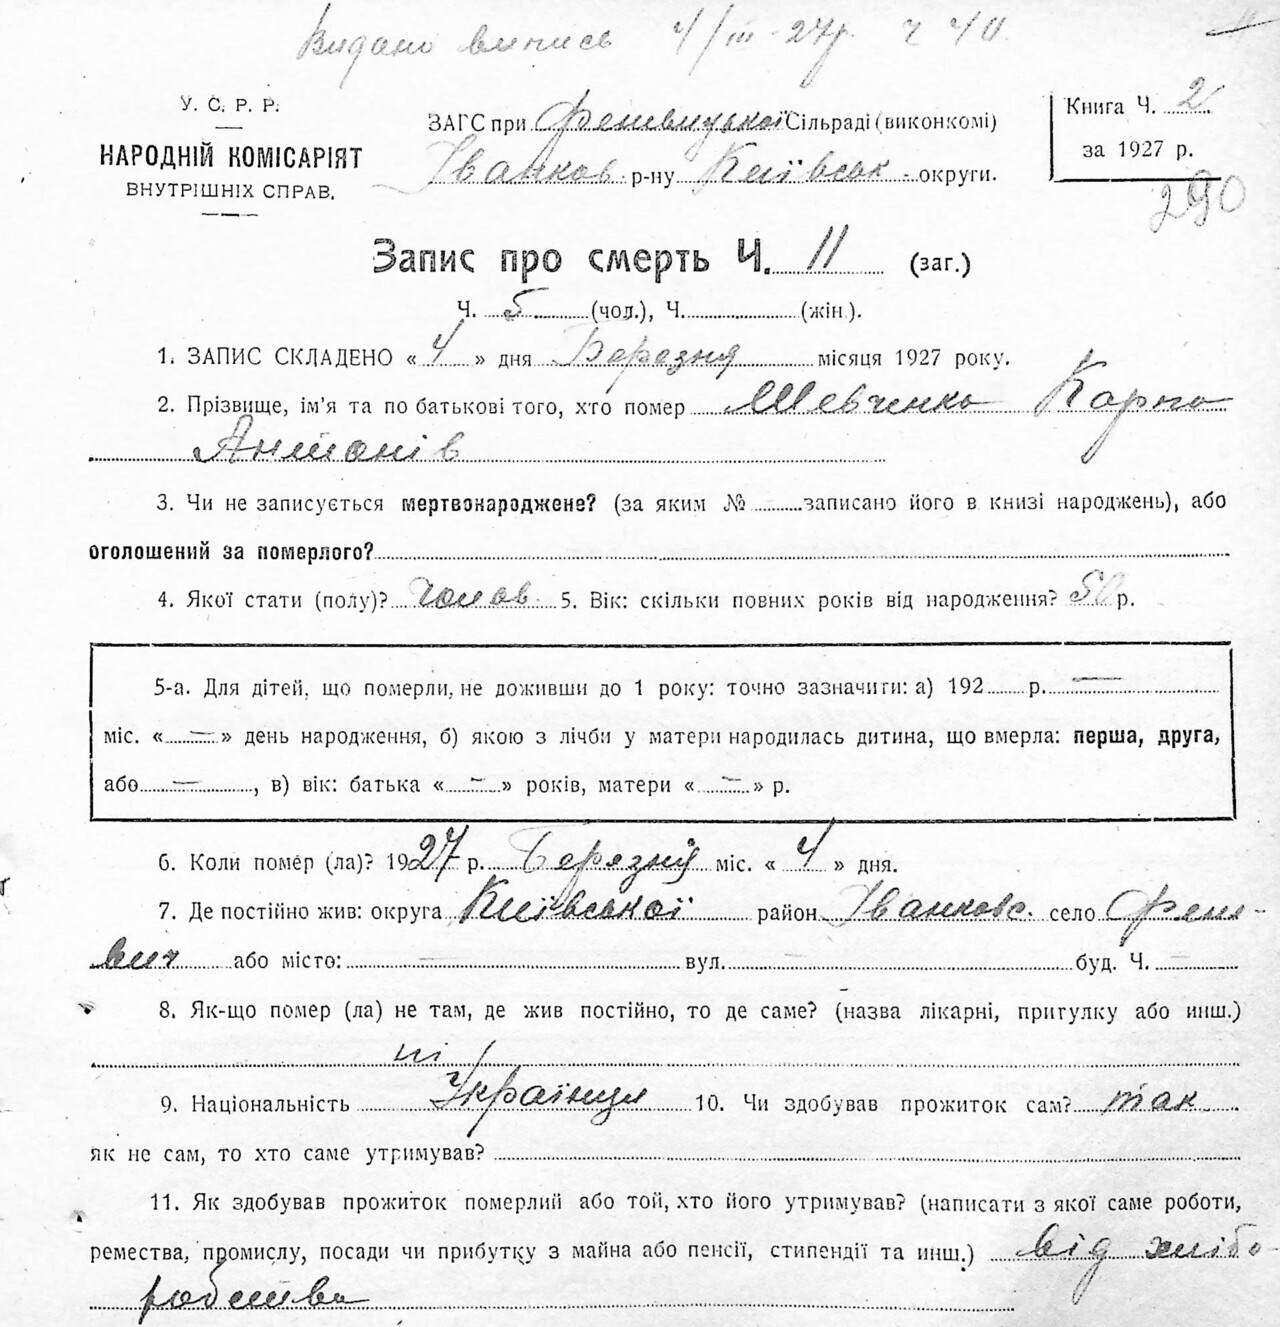 Видано випись 4/III-27р. Ч 40
У. С. Р. Р.
НАРОДНІЙ КОМІСАРІЯТ
ВНУТРІШНІХ СПРАВ.
ЗАГС при Феневицької Сільраді (виконкомі)
Іванков р-ну Київськ округи.
Книга Ч. 2
за 1927 р.
290
Запис про смерть Ч. 11 (заг.)
Ч. 5 (чол.), Ч. (жін.).
1. ЗАПИС СКЛАДЕНО « 4 » дня Березня місяця 1927 року.
2. Прізвище, ім'я та по батькові того, хто помер Шевченко Карпо
Антонів
3. Чи не записується мертвонароджене? (за яким № записано його в книзі народжень), або
оголошений за померлого?
4. Якої стати (полу)? Чолов. 5. Вік: скільки повних років від народження? 50 р.
5-а. Для дітей, що померли, не доживши до 1 року: точно зазначити: а) 192 р. —
міс. « — » день народження, б) якою з лічби у матери народилась дитина, що вмерла: перша, друга,
або — , в) вік: батька « — » років, матери « — » р.
6. Коли помер (ла)? 1927 р. Березня міс. « 4 » дня.
7. Де постійно жив: округа Київської район Іванковс. село Фене-
вич або місто: — вул. — буд. Ч. —
8. Як-що помер (ла) не там, де жив постійно, то де саме? (назва лікарні, пригулку або инш.)
ні
9. Національність Українця 10. Чи здобував прожиток сам? так
як не сам, то хто саме утримував?
11. Як здобував прожиток померлий або той, хто його утримував? (написати з якої саме роботи,
ремества, промислу, посади чи прибутку з майна або пенсії, стипендії та инш.) від хлібо-
робства